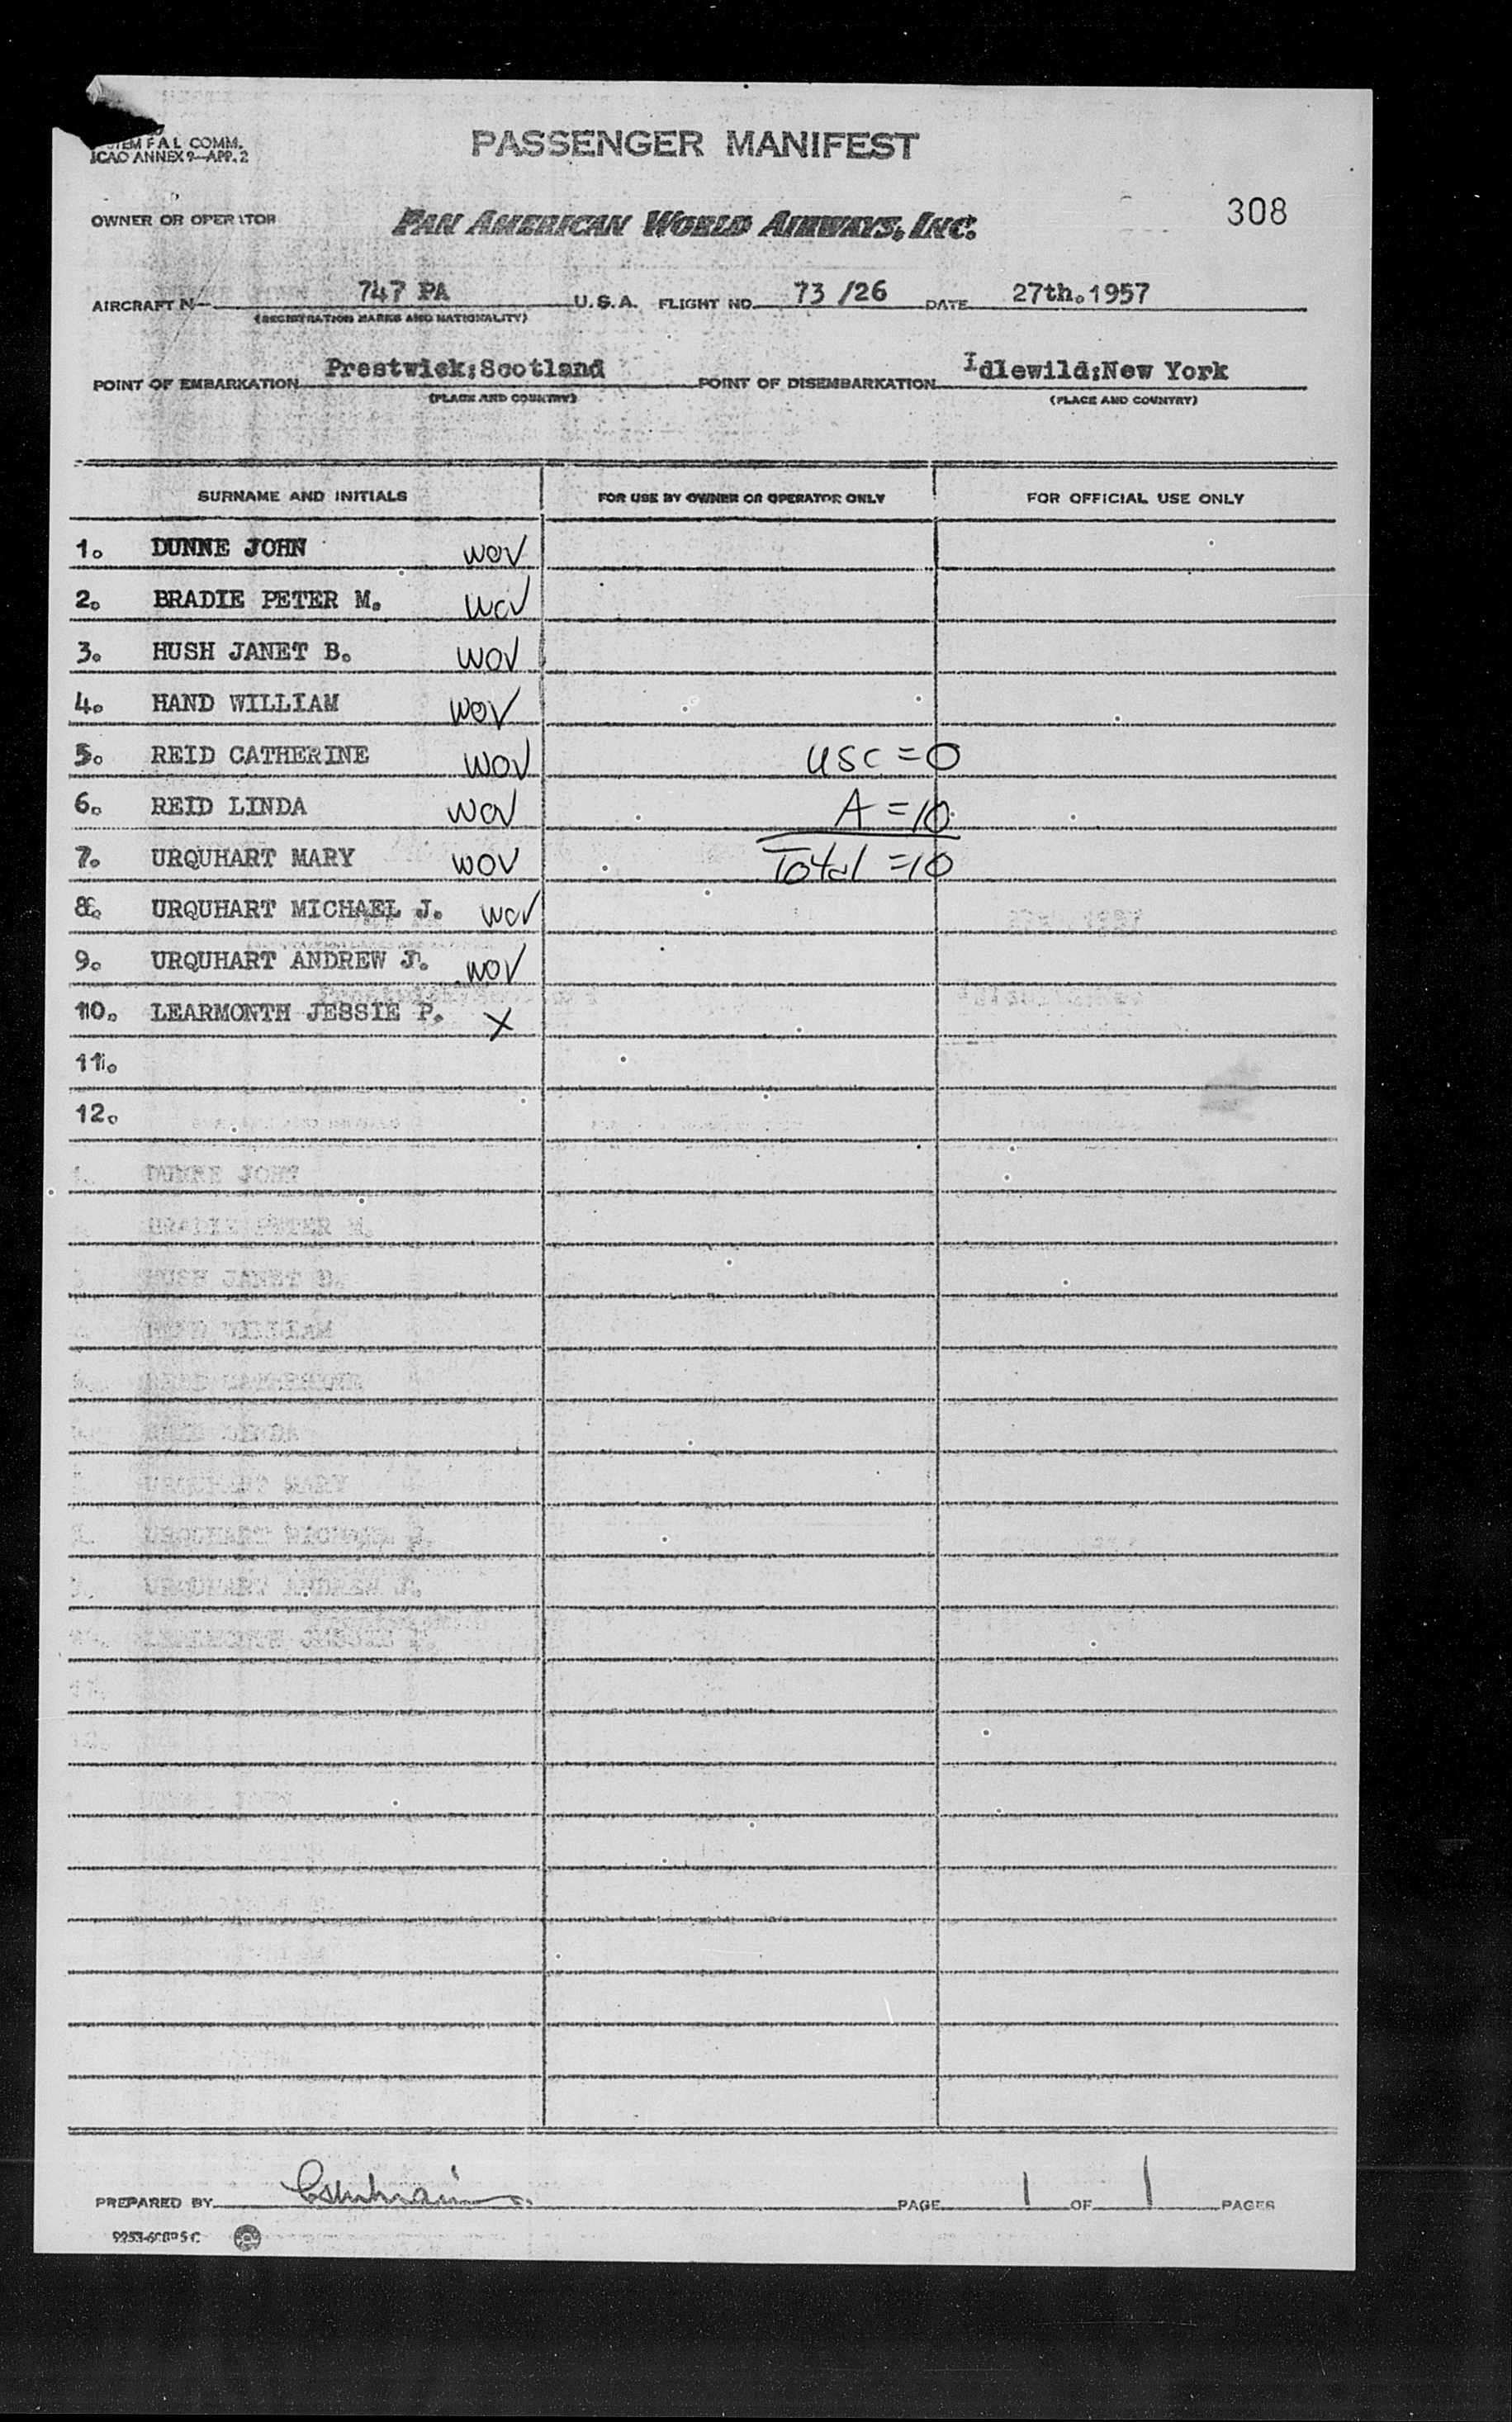 PASSENGER MANIFEST
F A L COMM.
ICAO ANNEX 9—APP. 2
OWNER OR OPERATOR PAN AMERICAN WORLD AIRWAYS, INC. 308
AIRCRAFT N— 747 PA U.S.A. FLIGHT NO. 73 /26 DATE 27th.1957
(REGISTRATION MARKS AND NATIONALITY)
POINT OF EMBARKATION Prestwick;Scotland POINT OF DISEMBARKATION Idlewild;New York
(PLACE AND COUNTRY) (PLACE AND COUNTRY)
SURNAME AND INITIALS FOR USE BY OWNER OR OPERATOR ONLY FOR OFFICIAL USE ONLY
1. DUNNE JOHN WOV
2. BRADIE PETER M. WOV
3. HUSH JANET B. WOV
4. HAND WILLIAM WOV
5. REID CATHERINE WOV USC = 0
6. REID LINDA WOV A = 10
7. URQUHART MARY WOV Total = 10
8. URQUHART MICHAEL J. WOV
9. URQUHART ANDREW J. WOV
10. LEARMONTH JESSIE P. X
11.
12.
DUNNE JOHN
PETER M.
HUSH JANET B.
WILLIAM
URQUHART MARY
URQUHART MICHAEL J.
URQUHART ANDREW J.
LEARMONTH JESSIE P.
PREPARED BY PAGE 1 OF 1 PAGES